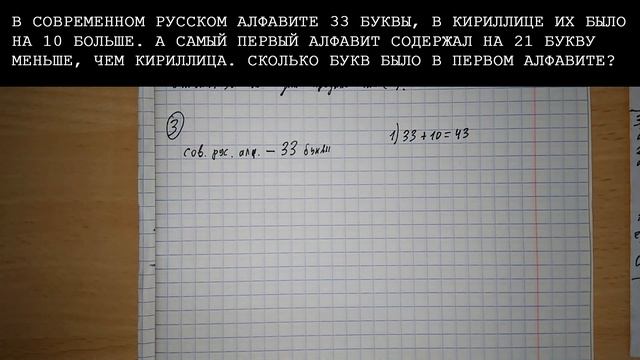 В СОВРЕМЕННОМ РУССКОМ АЛФАВИТЕ 33 БУКВЫ, В КИРИЛЛИЦЕ ИХ БЫЛО
НА 10 БОЛЬШЕ. А САМЫЙ ПЕРВЫЙ АЛФАВИТ СОДЕРЖАЛ НА 21 БУКВУ
МЕНЬШЕ, ЧЕМ КИРИЛЛИЦА. СКОЛЬКО БУКВ БЫЛО В ПЕРВОМ АЛФАВИТЕ?
3
1) 33 + 10 = 43
сов. рус. алф. – 33 буквы